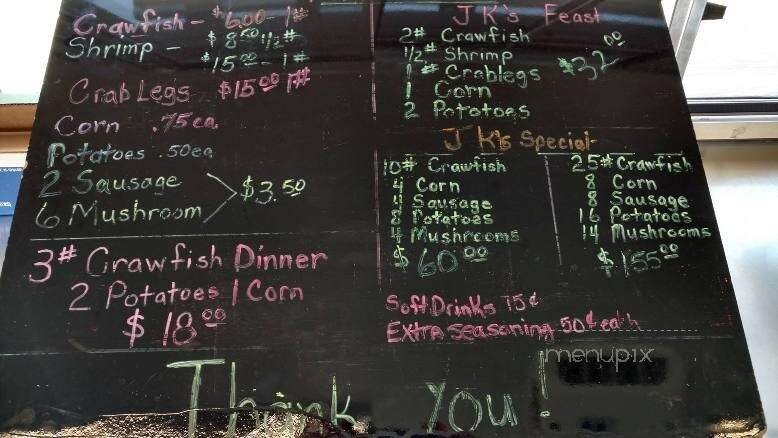 Crawfish - $6.00 - 1#
Shrimp - $8.50 1/2#
$15.00 - 1#
Crab Legs $15.00 1#
Corn .75 ea
Potatoes .50 ea
2 Sausage
6 Mushroom
$3.50
3# Crawfish Dinner
2 Potatoes 1 Corn
$18.00
JK's Feast
2# Crawfish
1/2# Shrimp
1# Crablegs
1 Corn
2 Pototoes
$32.00
JK's Special
10# Crawfish
4 Corn
4 Sausage
8 Potatoes
4 Mushrooms
$60.00
25# Crawfish
8 Corn
8 Sausage
16 Potatoes
14 Mushrooms
$155.00
Soft Drinks 75¢
Extra seasoning 50¢ each
Thank You!
menupix